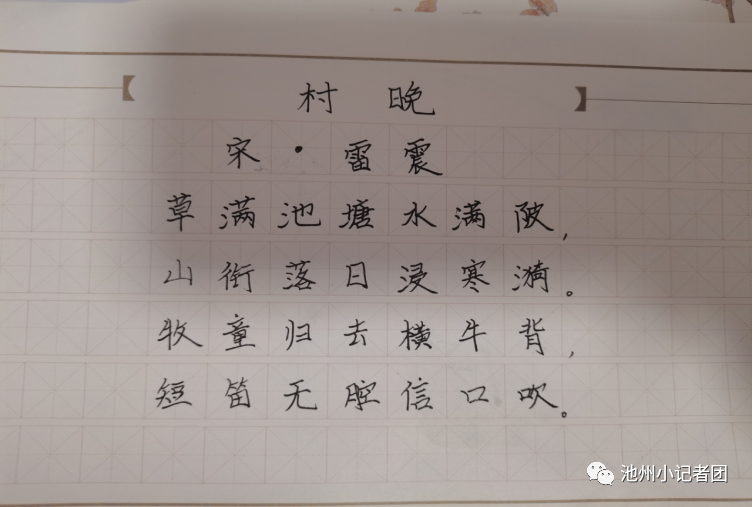 村晚
宋·雷震
草满池塘水满陂,
山衔落日浸寒漪。
牧童归去横牛背,
短笛无腔信口吹。
池州小记者团